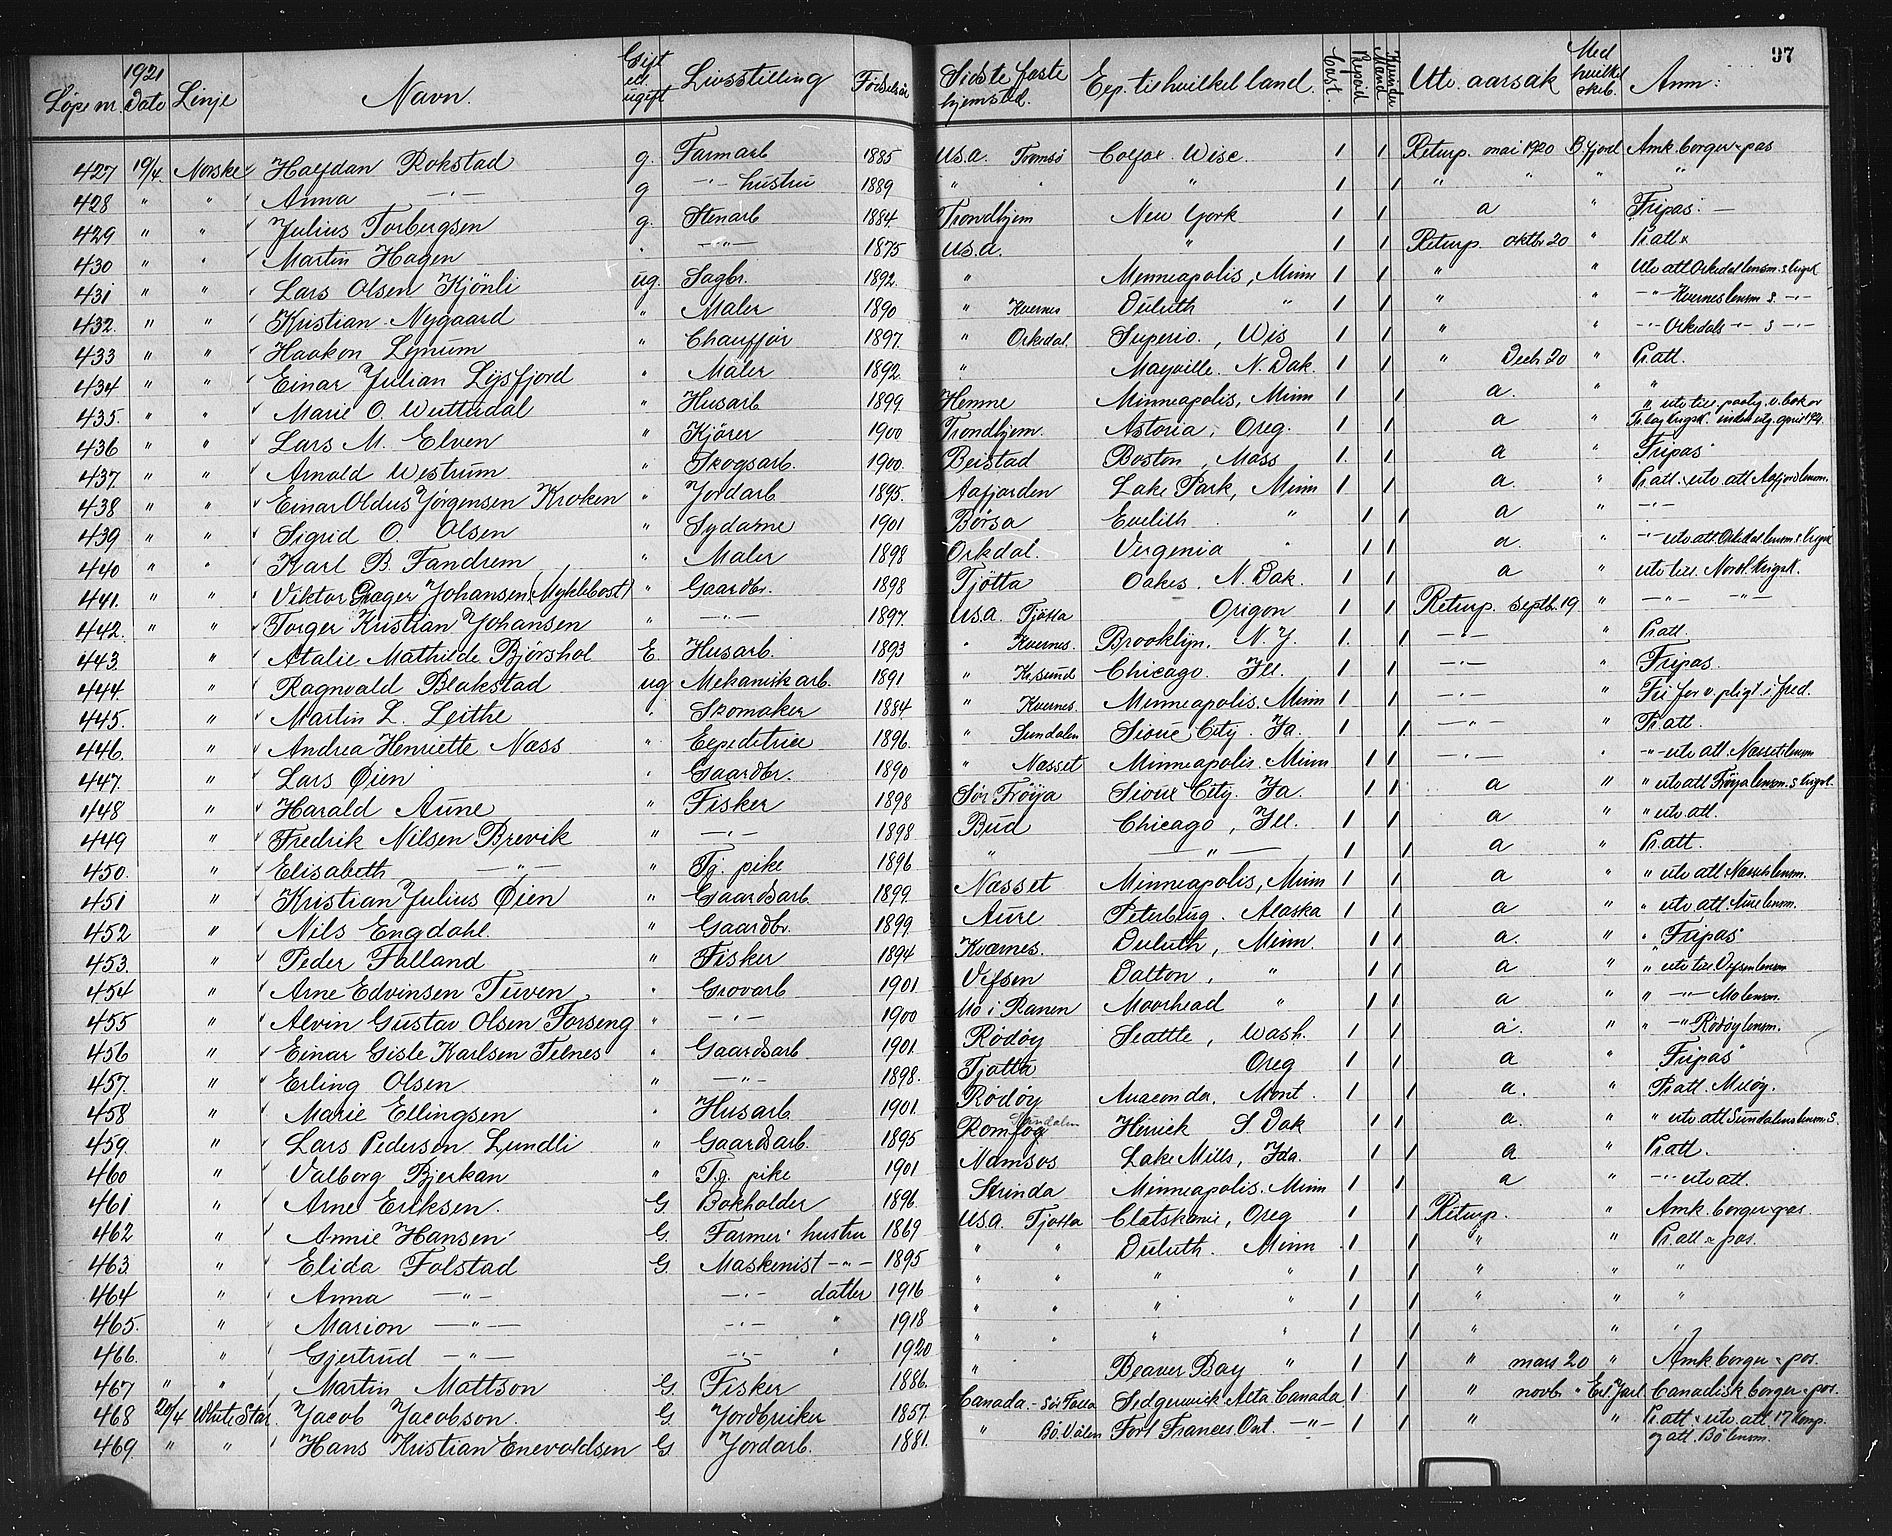 97
Løpe nr. 1921 Date Linje Navn. Gift ell. ugift Livsstilling Fødselsår Sidste faste hjemsted. Exp. til hvilket land. Cont. Prepaid Mænd Kvinder Utv. aarsak Med hvilket skib. Anm:
427 19/4. Norske Halfdan Rokstad g. Farmarb 1885 U.S.a. Tromsø Colfax Wisc. 1 1 Returp. mai 1920 B.fjord Amk. borger-pas
428 " " Anna —"— g —"— hustru 1889 " " " 1 1 " " " "
429 " " Julius Torbergsen g. Stenarb 1884. Trondhjem New York 1 1 a " Fripas. —
430 " " Martin Hagen " —"— 1875 U.S.a. " 1 1 Returp. oktbr 20 " Pr. att.
431 " " Lars Olsen Kjönli ug. Sagbr. 1892. " Minneapolis, Minn 1 1 " " Utv att Orkedal lensm. s krigsk
432. " " Kristian Nygaard " Maler 1890 " Kvernes Duluth " 1 1 " " —"— Kvernes lensm s. —"—
433 " " Haakon Lynum " Chauffør 1897. " Orkedal. Superio., Wis 1 1 " " —"— Orkedals —"— s —"—
434 " " Einar Julian Lysfjord " Maler 1892. " Mayville. N. Dak. 1 1 " Decb. 20 " Pr. att.
435. " " Marie O. Wuttudal " Husarb 1899. Hemne Minneapolis, Minn 1 1 a. " "
436 " " Lars M. Elven " Kjører 1900 Trondhjem. Astoria, Oreg. 1 1 a "
437. " " Arnold Westrum " Skogsarb. 1900. Beistad Boston, Mass 1 1 a " Fripas
438 " " Einar Oldus Jørgensen Kroken " Jordarb 1895. Aafjorden Lake Park, Minn 1 1 a. " Pr. att. utv att Aafjord lensm.
439 " " Sigrid O. Olsen " Sydame 1901 Børsa Evelith " 1 1 a " —"—
440 " " Karl B. Fandrem " Maler 1898 Orkdal. Vergenia " 1 1 a. " —"— utv. att. Orkedal lensm. s krigsk
441. " " Viktor Græger Johansen (Myklebost) " Gaardbr. 1898 Tjøtta Oakes, N. Dak. 1 1 a " utv till. Nordl. Krigsk.
442. " " Torger Kristian Johansen " —"— 1897. U.S.a. Tjøtta Origon 1 1 Returp. Septb. 19 " —"— —"—
443. " Atalie Mathilde Björshol E. Husarb. 1893 " Kvernes. Brooklyn, N.Y. 1 1 —"— " Pr. att.
444. " Ragnvald Blakstad ug Mekanisk arb. 1891 " Kr.sund Chicago. Ill. 1 1 —"— " Fripas.
445. " Martin L. Leithe " Skomaker 1884 " Kvernes. Minneapolis. Minn 1 1 —"— " Fri for v. pligt i fred.
446. " Andrea Henriette Næss " Expeditrice 1896. " Sundalen Sioux City. Ia. 1 1 —"— " Pr. att.
447. " Lars Øien " Gaardbr. 1890 " Næsset Minneapolis. Minn 1 1 —"— " —"— utv att. Næsset lensm
448 " Harald Aune " Fisker 1898 Sør Frøya Sioux City. Ia. 1 1 a " " utv att Frøya lensm. s krigsk.
449 " Fredrik Nilsen Brevik " —"— 1898 Bud Chicago, Ill. 1 1 a " " utv att.
450. " Elisabeth —"— " Tj. pike 1896 " —"— 1 1 a " Pr. att.
451 " Kristian Julius Øien " Gaardsarb. 1899. Næsset Minneapolis, Minn 1 1 a " " utv att Næsset lensm.
452 " Nils Engdahl. " Gaardbr. 1899. Aure Peterburg. Alaska 1 1 a " " utv att. Aure lensm.
453. " Peder Falland " Fisker 1894 Kværnes. Duluth, Minn. 1 1 a. " " Fripas
454 " Arne Edvinsen Tuven " Grovarb 1901 Vefsen Dalton, " 1 1 a " " utv till Vefsen lensm
455 " Alvin Gustav Olsen Forseng " —"— 1900 Mo i Ranen Moorhead " 1 1 a " " —"— Mo lensm.
456 " Einar Gisle Karlsen Telnes " Gaardsarb 1901. Rødøy Seattle, Wash. 1 1 a. " " —"— Rødøy lensm.
457. " Erling Olsen " —"— 1898. Tjøtta Oreg 1 1 a " Fripas
458 " Marie Ellingsen " Husarb 1901. Rødøy Anaconda, Mont. 1 1 a. " Pr. att. Meløy.
459. " Lars Pedersen Lundli " Gaardsarb. 1895 Sundalen Herrick S. Dak 1 1 a. " " utv att Sundalens lensm. s.
460 " Valborg Bjerkan " Tj. pike 1901 Namsos Lake Mills, Ida. 1 1 a " Pr. att.
461 " Arne Eriksen. G. Bokholder 1896. Strinda Minneapolis. Minn 1 1 a " —"— utv att.
462 " Annie Hansen G. Farmer hustru 1869 U.S.a. Tjøtta Clatskanie, Oreg 1 1 Returp. " Amk. borger-pas.
463 " Elida Folstad G. Maskinist —"— 1895 " " Duluth. Minn 1 1 " " Pr. att - pas.
464 " Anna —"— —"— datter 1916 " " " " 1 1 " " "
465. " Marion —"— —"— " 1918 " " " " 1 1 " " "
466. " Gjertrud —"— —"— " 1920 " " " " 1 1 " " "
467 " " Martin Mattson G. Fisker 1886. " Beaver Bay " 1 1 " mars 20 " Amk borger-pas.
468 20/4 White Star Jacob Jacobson. G. Jordbruker 1857. Canada - Sedgewick Alta Canada 1 1 " novb. " Erl. Jarl Canadisk borger-pas.
469. " " Hans Kristian Enevoldsen G. Jordarb. 1881. " Bø. Vålen Fort Frances. Ont. —"— 1 1 " " Pr. att. utv. att. 17 Komp.
og att. Bø lensm.